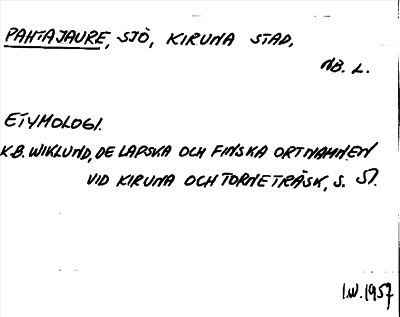 PAHTAJAURE, SJÖ, KIRUNA STAD,
NB. L.
ETYMOLOGI.
K.B. WIKLUND, DE LAPSKA OCH FINSKA ORTNAMNEN
VID KIRUNA OCH TORNETRÄSK, S. 51.
I.W. 1957